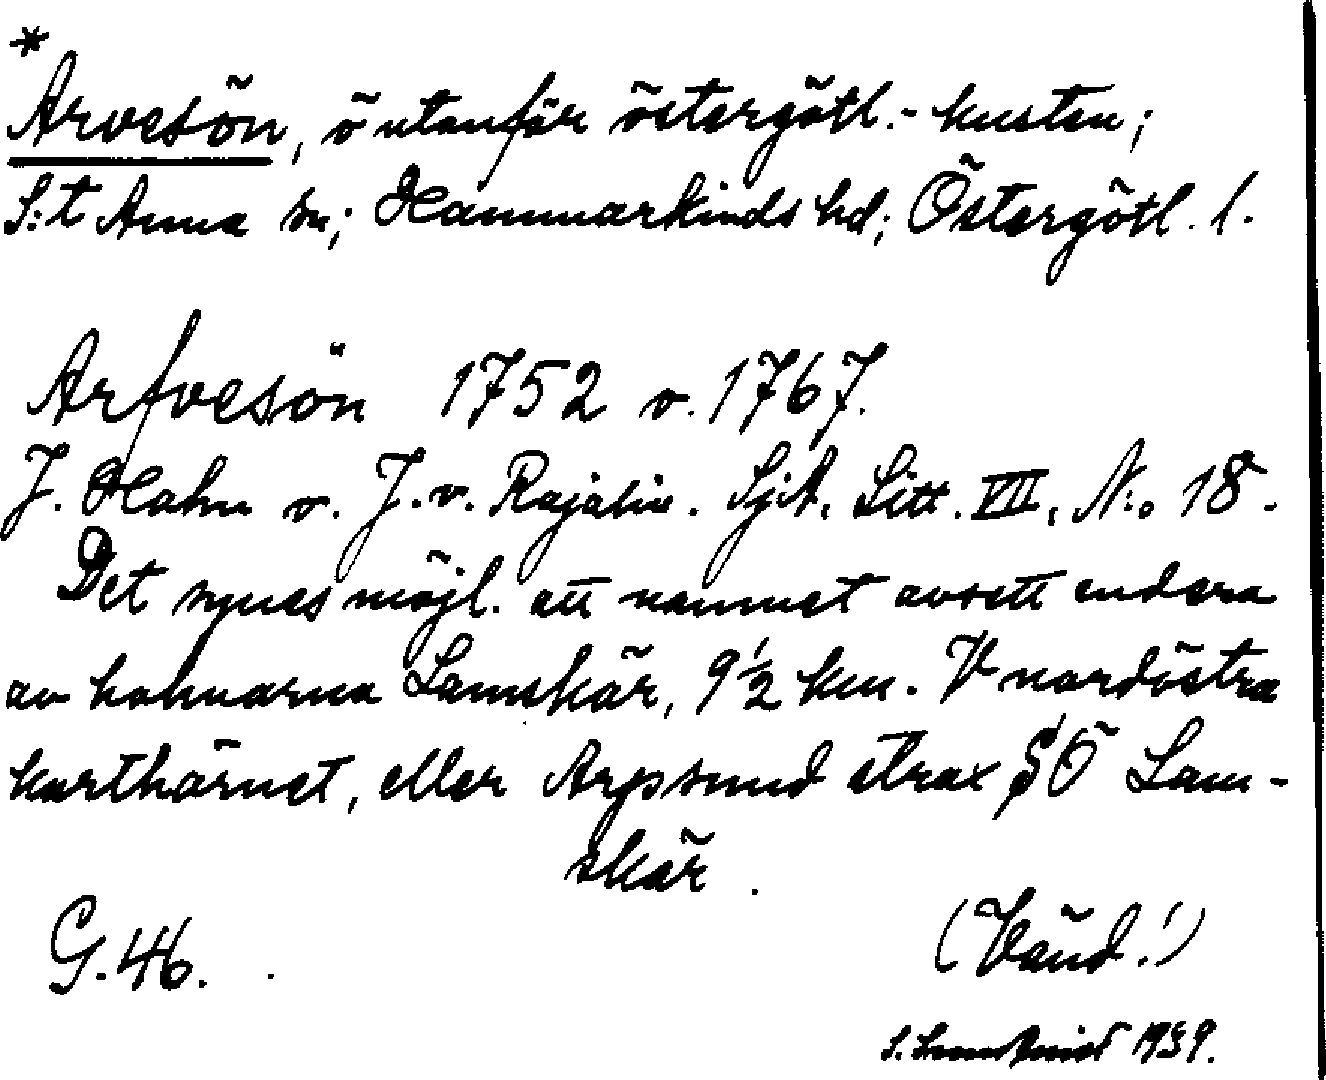 *
Arvesön, ö utanför östergötl.-kusten;
S:t Anna sn; Hammarkinds hd; Östergötl. l.
Arfvesön 1752 o. 1767.
J. Hahn o. J. v. Rajalin. SjA. Litt. VII, N:o 18.
Det synes möjl. att namnet avsett endera
av holmarna Lamskär, 9 1/2 km. V nordöstra
karthörnet, eller Arpsund strax SÖ Lam-
skär.
G. 46.
(Vänd!)
S. 1939.